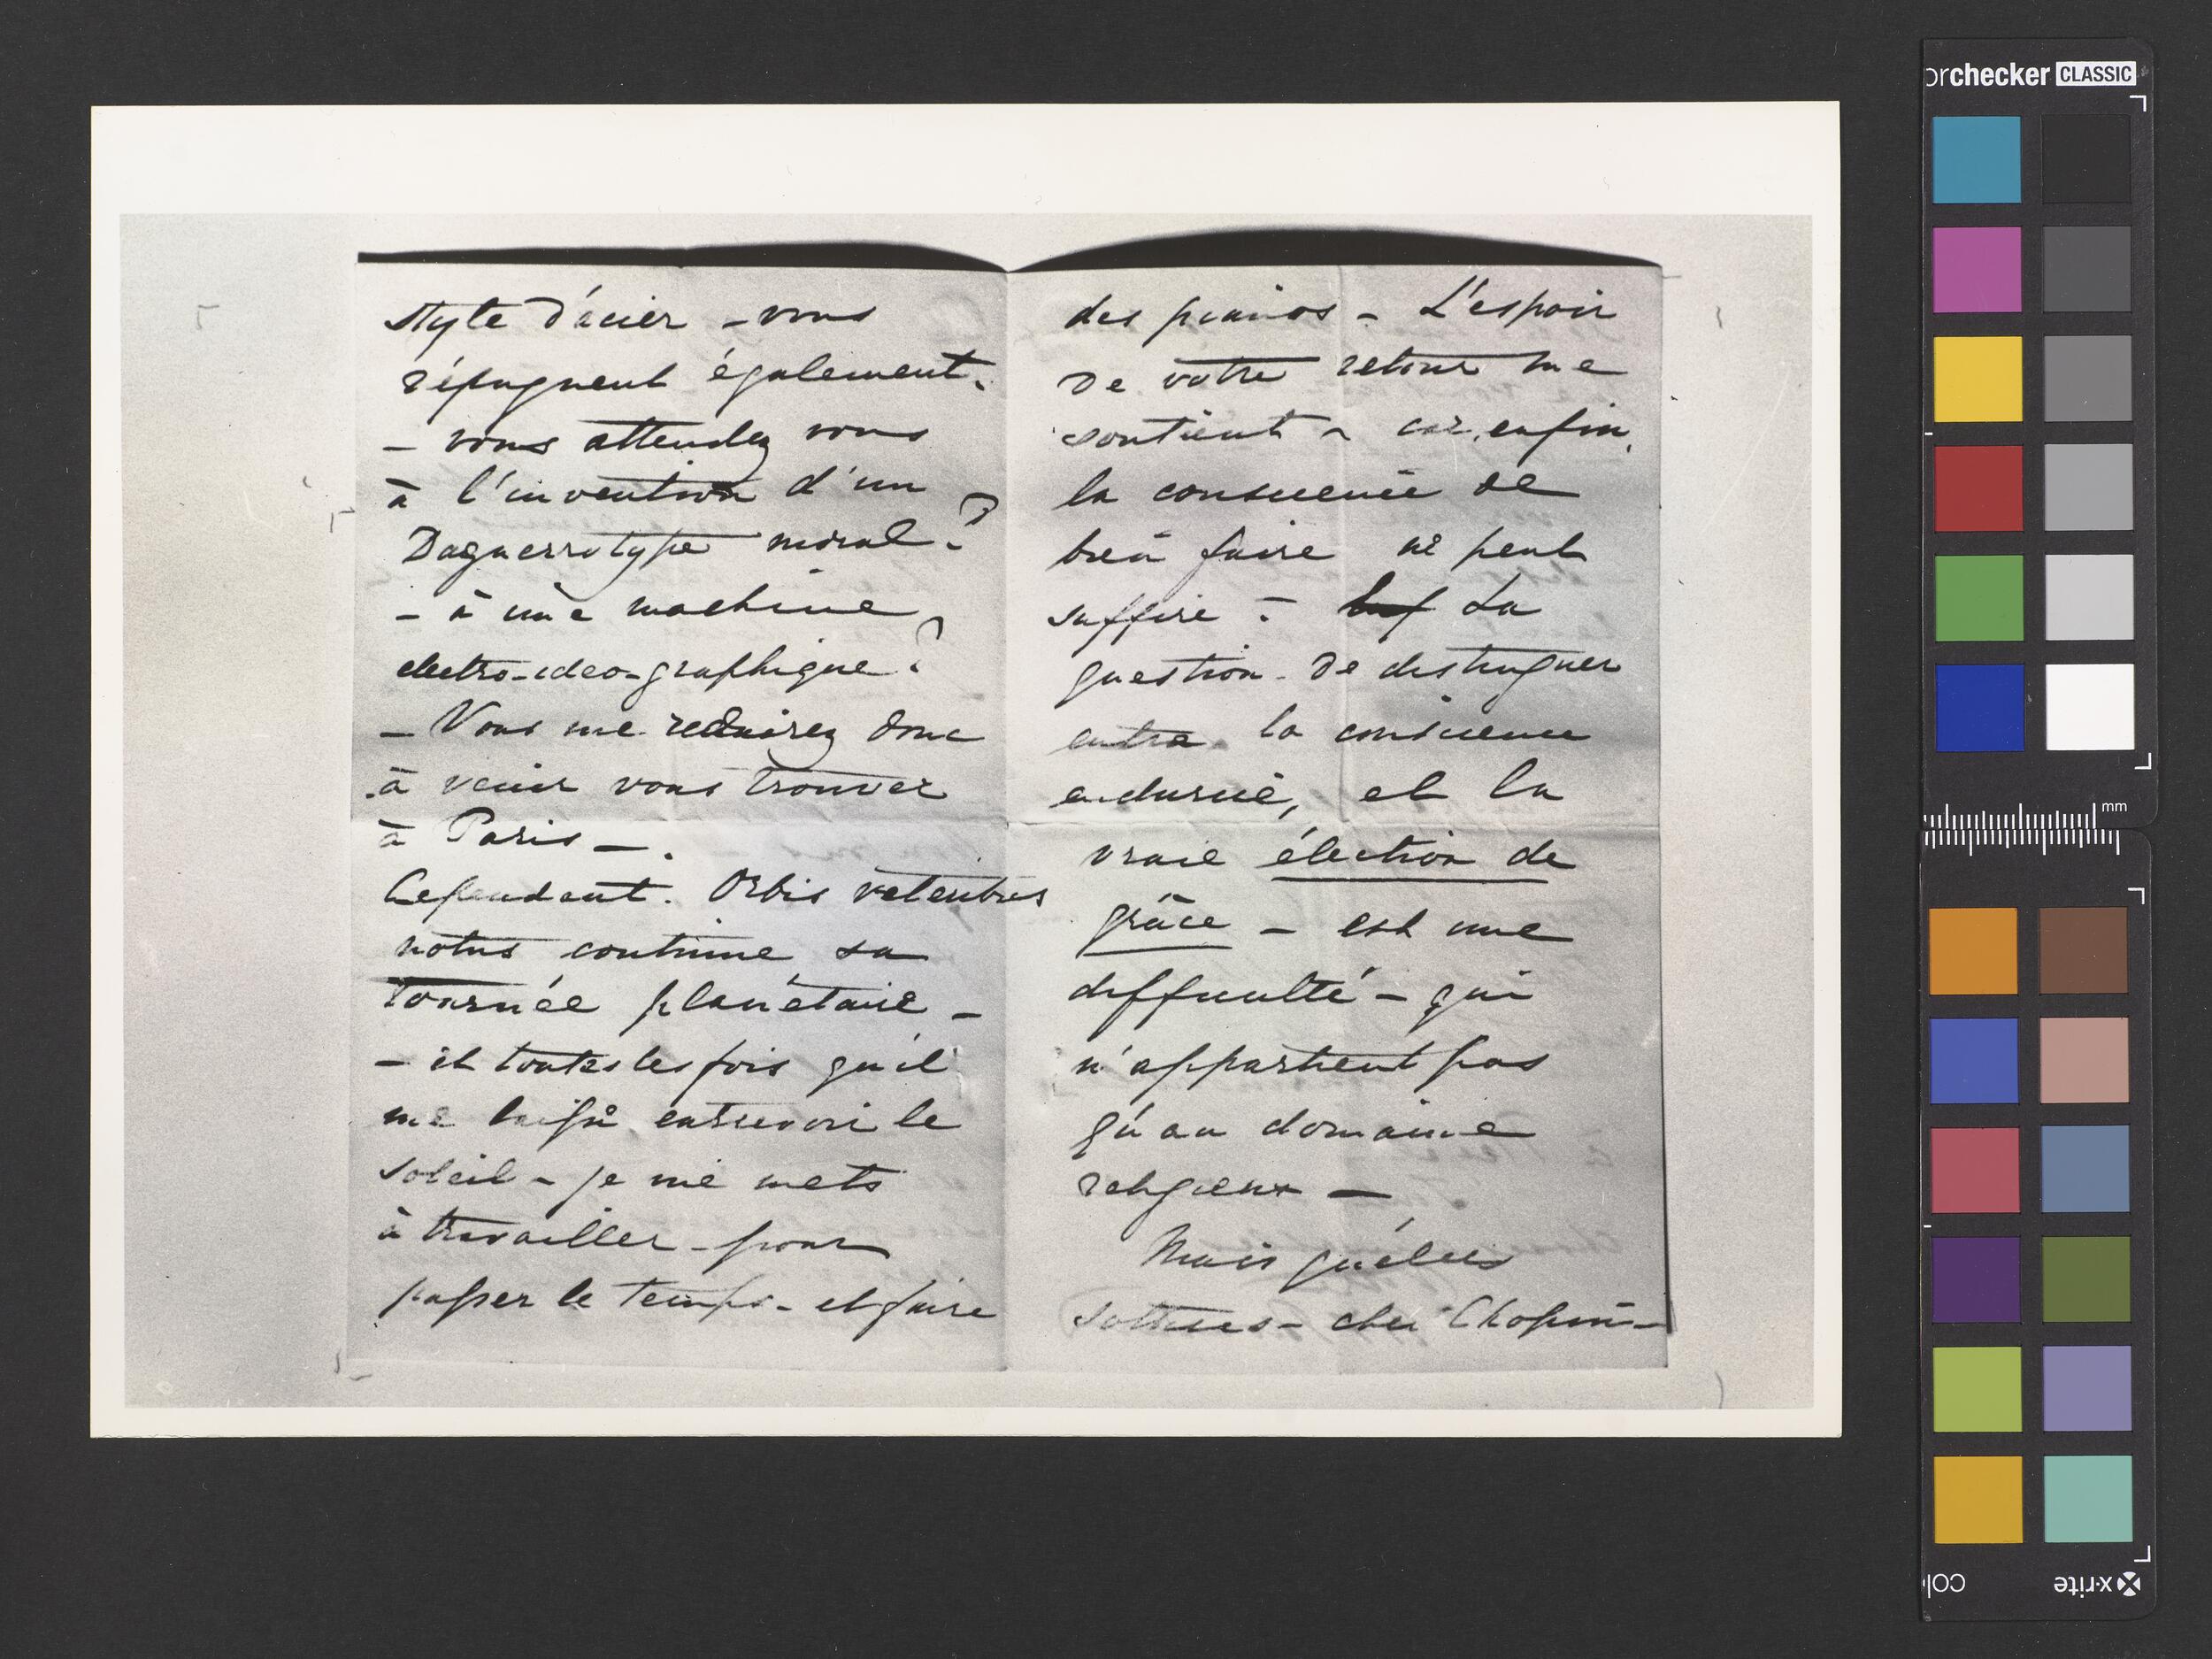 style d'acier – vous
répugnent également.
– vous attendez vous
à l'invention d'un
Daguerrotype moral ?
– à une machine
electro-ideo-graphique ?
– Vous me reduirez donc
à venir vous trouver
à Paris –.
Cependant. Orbis veteribus
notus continue sa
tournée planétaire –
– et toutes les fois qu'il
me laisse entrevoir le
soleil – je me mets
à travailler – pour
passer le temps – et faire
des pianos – L'espoir
de votre retour me
soutient – car, enfin,
la conscience de
bien faire ne peut
suffire – La
question – de distinguer
entre la conscience
endurcie, et la
vraie élection de
grâce – est une
difficulté – qui
n'appartient pas
qu'au domaine
religieux –
Mais quelles
sottises – cher Chopin –
orchecker CLASSIC
mm
x-rite
colo